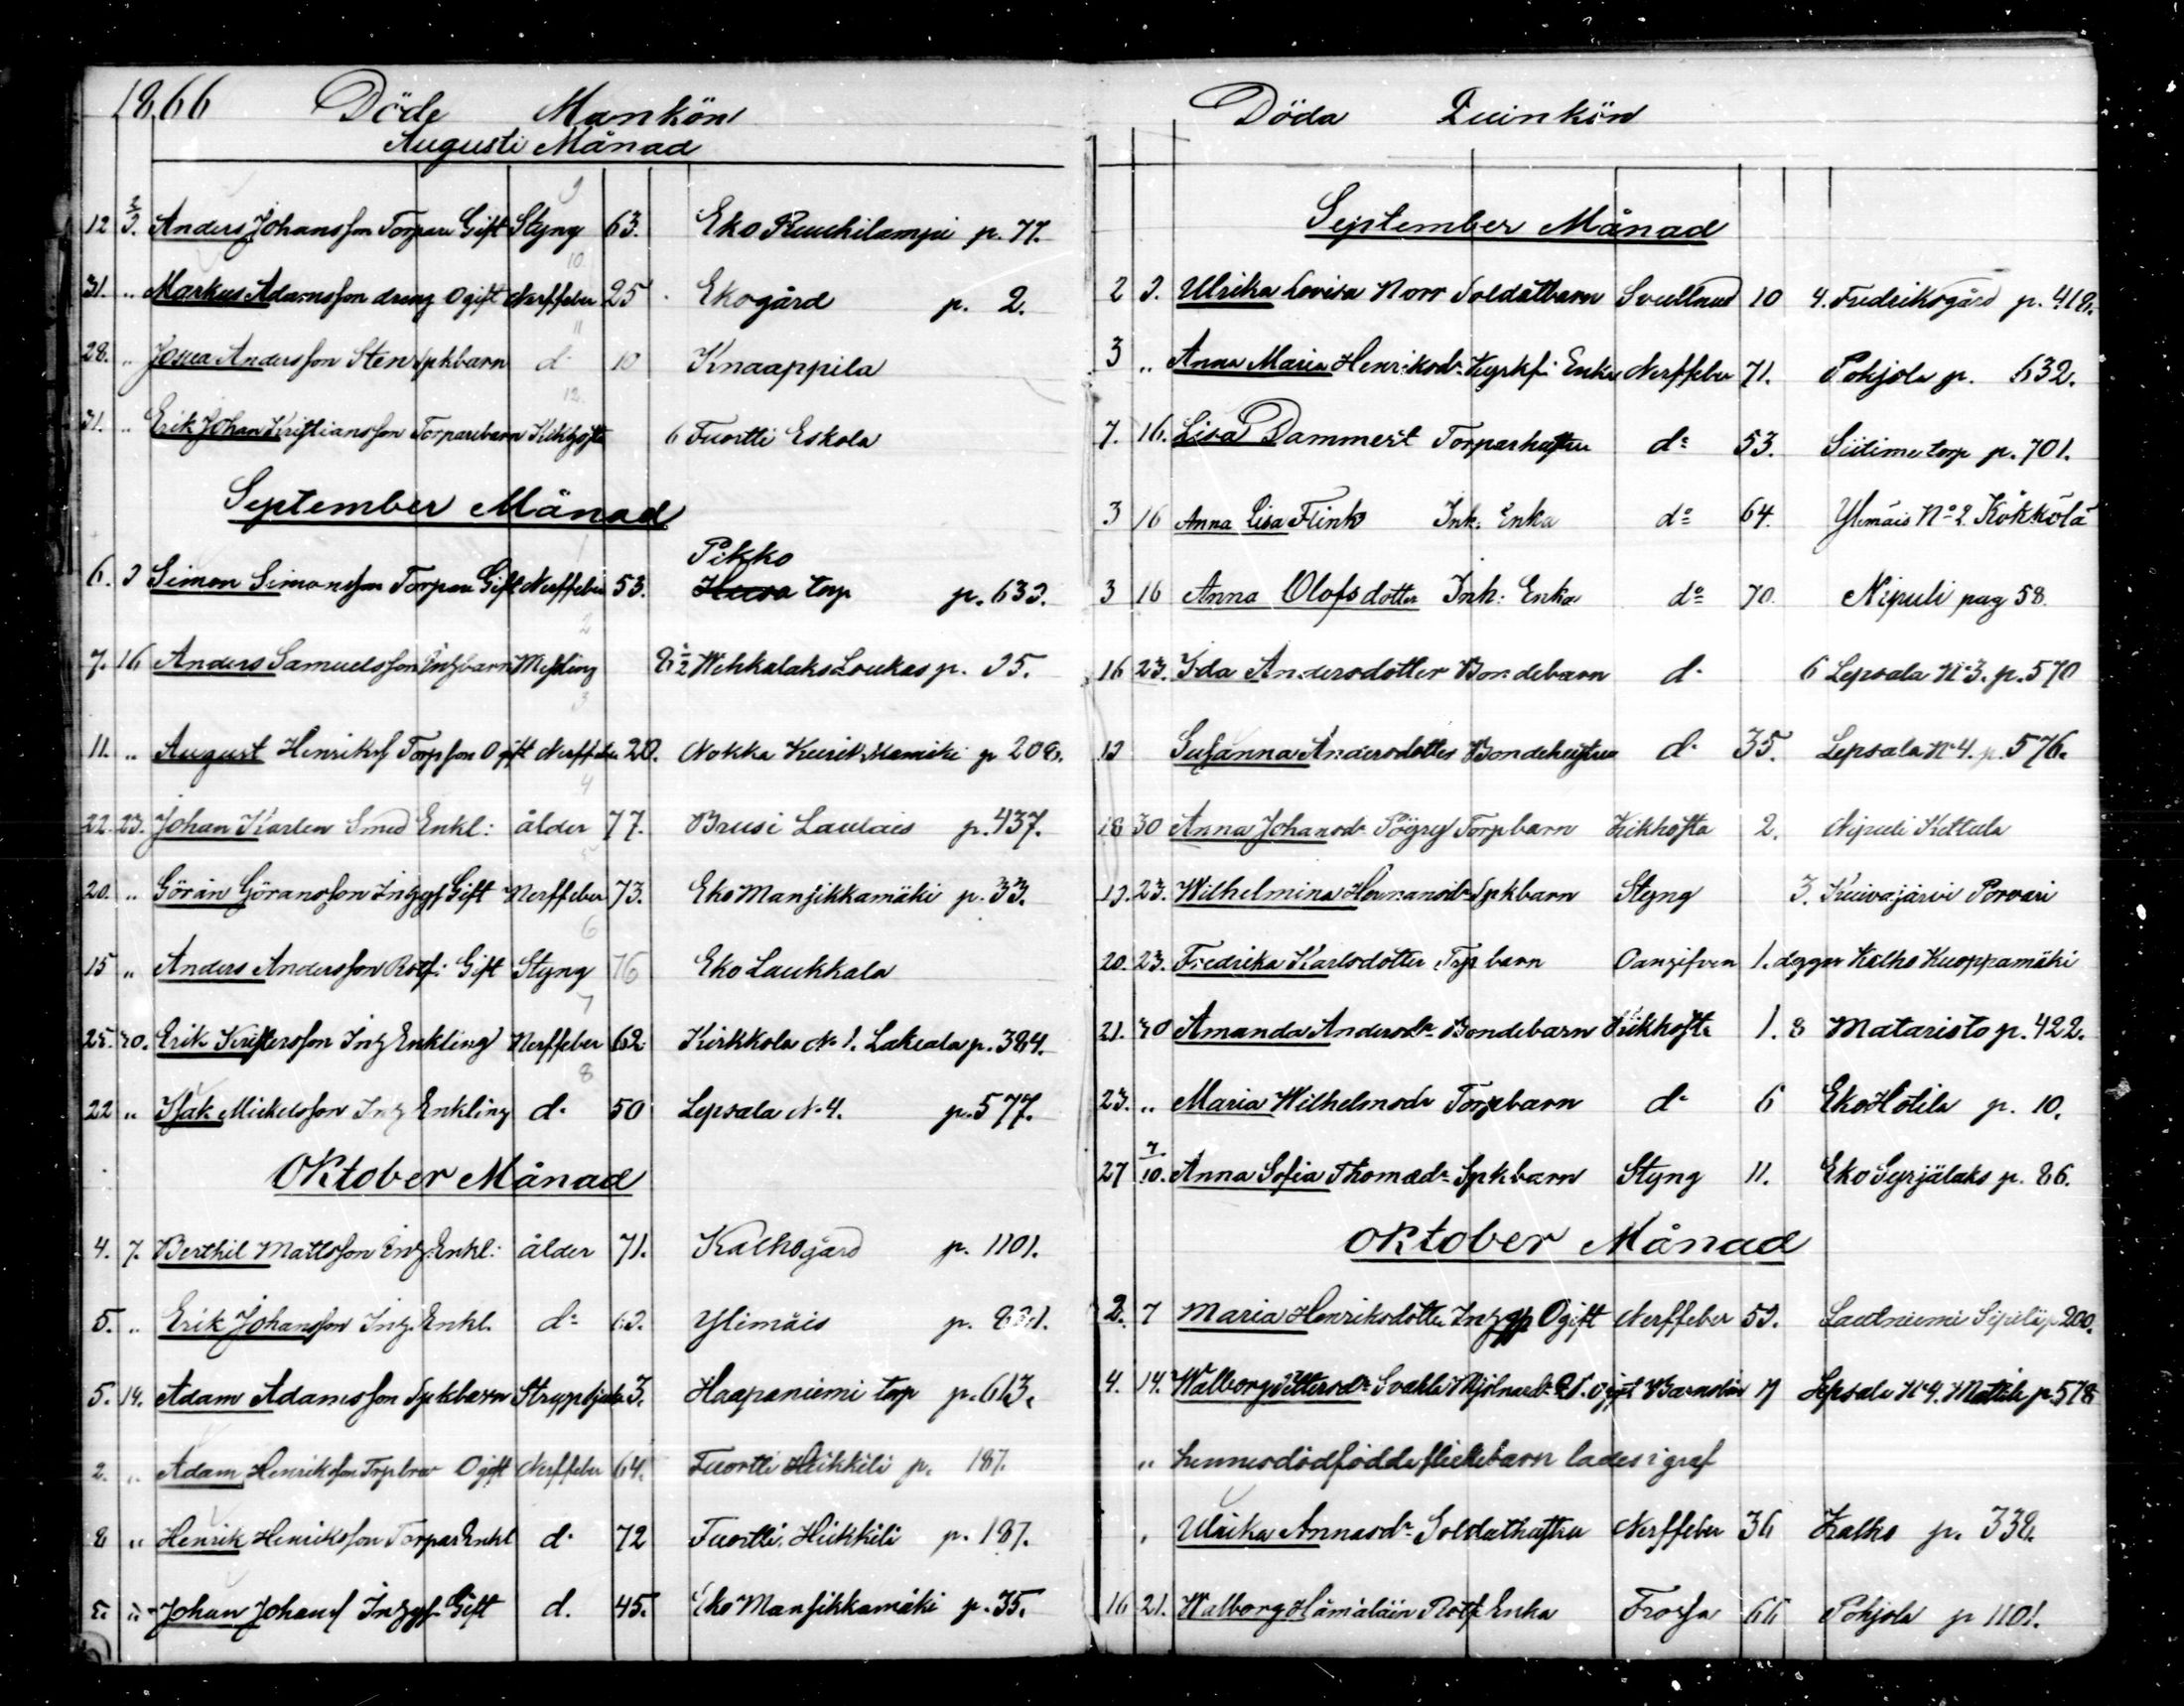 1866 Döde Mankön
Augusti Månad
9
12 2/9. Anders Johansson Torpare Gift Styng 63. Eko Ruuhilampi p. 77.
10
31. " Markus Adamsson dreng Ogift Nerffeber 25 Ekogård p. 2.
11
28. " Josua Andersson Sten Spkbarn d- 10 Knaappila
12.
31. " Erik Johan Kristiansson Torparebarn Kikhosta 6 Tuortti Eskola
September Månad
1
Pikko
6. 9 Simon Simonsson Torpare Gift Nerffeber 53. torp p. 639.
2
7. 16 Anders Samuelsson Inhbarn Messling 8 1/2 Wehkalaks Loukas p. 95.
3
11. " August Henrikss Torpson Ogift Nerffeber 20. Nokka p 208.
4
22. 23. Johan Karlen Smed Enkl: ålder 77. Brusi Laulais p. 437.
5
20. " Göran Göransson Inhyg Gift Nerffeber 73. Eko Mansikkamäki p. 33.
6
15 " Anders Andersson Rotf: Gift Styng 76 Eko Laukkala
7
25. 30. Erik Kristersson Inh Enkling Nerffeber 62 Kirkkola N 1. Lakeala p. 384.
8
22 " Isak Mickelsson Inh Enkling d- 50 Lepsala N 4. p. 577.
Oktober Månad
4. 7. Berthil Mattsson Inh. Enkl: ålder 71. Kalhogård p. 1101.
5. " Erik Johansson Inh. Enkl. d- 69. Ylimäis p.
5. 14. Adam Adamsson Spkbarn Strypsjuka 3. Haapaniemi torp p. 613.
2. " Adam Henriksson Ogift Nerffeber 64. Tuortti Heikkili p. 187.
8 " Henrik Henriksson Torpar Enkl d- 72 Tuortti Heikkili p. 187.
5. " Johan Johanss Inhyg. Gift d. 45. Eko Mansikkamäki p. 35.
Döda Quinkön
September Månad
2 9. Ulrika Lovisa Norr Soldatbarn Svullnad 10 4. Fredriksgård p. 418.
3 " Anna Maria Henriksdr Kyrkf: Enka Nerffeber 71. Pohjola p. 632.
7. 16. Lisa Dammert Torparhustru do 53. Siitime torp p. 701.
3 16 Anna Lisa Flink Inh. Enka do 64. Ylimäis No 2. Kökkölä
3 16 Anna Olofsdotter Inh: Enka do 70. Nipuli pag 58.
16 23. Ida Andersdotter Bondebarn d- 6 Lepsala N 3. p. 570
19 Susanna Andersdotter Bondehustru d- 35. Lepsala N 4. p. 576.
18 30 Anna Johansdr Töyry Torpbarn Kikhosta 2. Nipuli Kettula
19. 23. Wilhelmina Hermansdr Spkbarn Styng 3. Kuivajärvi Porvari
20. 23. Fredrika Karlsdotter Trp barn Oangifven 1. dygn Kalho Kuoppamäki
21. 30 Amanda Andersdr Bondebarn Kikhosta 1. 8 Mataristo p. 422.
23. " Maria Wilhelmsdr Torpbarn d- 6 Eko Hotila p. 10.
27 7/10. Anna Sofia Thomædr Spkbarn Styng 11. Eko Syrjälaks p. 86.
Oktober Månad
2. 7 Maria Henriksdotter Inhyg Ogift Nerffeber 59. Lautniemi Sipilä p 200.
4. 14. Walborg Pettersdr ogift Barnsbörd Lepsala N 4. Mattila p. 578
" hennes dödfödda flickebarn lades i graf
" Ulrika Annasdr Soldathustru Nerffeber 36 Kalho p. 338.
16 21. Walborg Hämäläin Rotf. Enka Frossa 66 Pohjola p 1101.